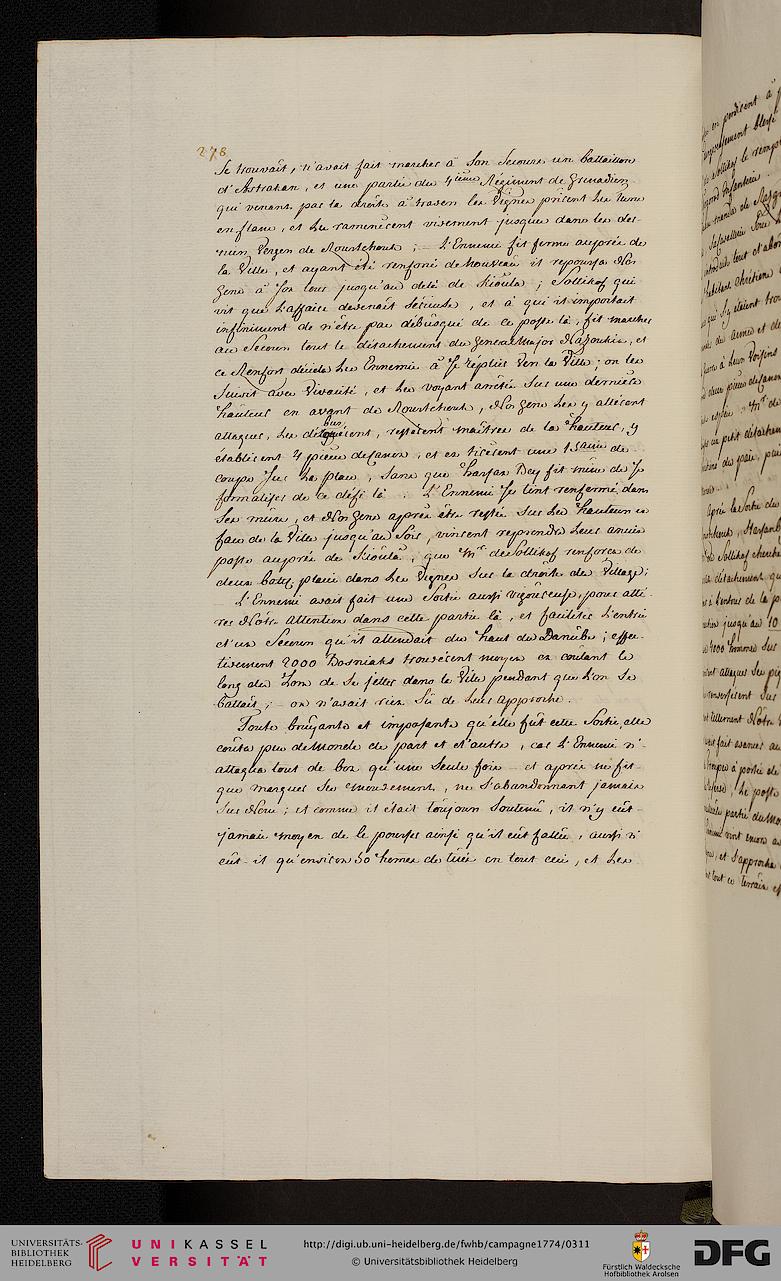 278
se trouvait, n'avait fait marcher à son secours un battaillon
d'Astrakan, et une partie du 4ieme Régiment de Grenadiers
qui venant par la droite à travers les Vignes prirent les turcs
en flanc, et les ramenerent vivement jusques dans les der-
niers Vergers de Roustchouk; — L'Ennemi fit ferme auprès de
la Ville, et ayant été renforcé de nouveau il repoussa Nos
Gens à son tour jusqu'au delà de Kioula; Soltikof qui
vit que l'affaire devenait serieuse, et à qui il importait
infiniment de n'être pas débusqué de ce poste là, fit marcher
au Secours tout le détachement du General Major , et
ce Renfort décida les Ennemis à se réplier vers la Ville; on les
suivit avec Vivacité, et les voyant arrêtés sur une derniere
hauteur en avant de Roustchouk, Nos Gens les y allerent
attaquer, les débusquerent, resterent maîtres de la hauteur, y
établirent 4 pieces de Canon, et en tirerent une 15aine de
coups sur la place, sans que Hassan Bey fit mine de se
formaliser de ce défi là. L'Ennemi se tint renfermé dans
ses murs, et Nos Gens après être restés sur les hauteurs en
face de la Ville jusqu'au Soir, vinrent reprendre leur ancien
poste auprès de Kioula, que Mr de Soltikof renforca de
deux batt: placés dans les Vignes sur la droite du Village;
L'Ennemi avait fait une Sortie aussi vigoureuse, pour atti-
rer Nôtre attention dans cette partie là, et faciliter l'entrée
d'un Secours qu'il attendait du haut du Danube; effec-
tivement 2000 Bosniaks trouverent moyen en coulant le
long du Lom de se jetter dans la Ville pendant que l'on se
battait; — on n'avait rien sû de leur approche.
Toute bruyante et imposante qu'elle fut cette Sortie, elle
coûta peu de Monde de part et d'autre, car L'Ennemi n'-
attaqua tout de bon qu'une seule fois et après ne fit
que marquer ses mouvements, ne s'abandonnant jamais
sur Nous; et comme il était toujours soutenu, il n'y eut
jamais moyen de le pousser ainsi qu'il eut fallu, aussi n'
eut-il qu'environ 50 homes de tués en tout ceci, et les
UNIVERSITÄTS-
BIBLIOTHEK
HEIDELBERG
UNIKASSEL
VERSITÄT
http://digi.ub.uni-heidelberg.de/fwhb/campagne1774/0311
© Universitätsbibliothek Heidelberg
Fürstlich Waldecksche
Hofbibliothek Arolsen
DFG